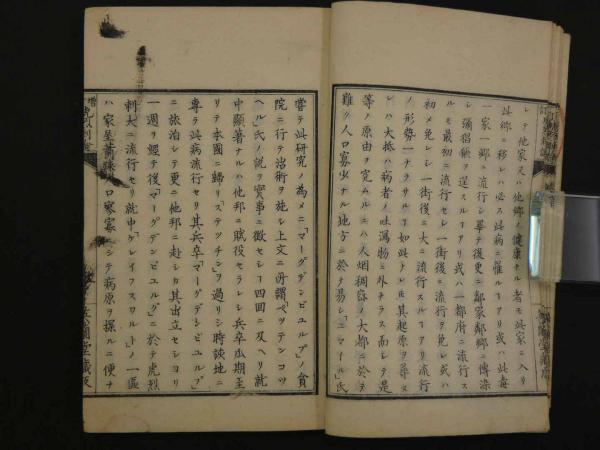 レテ他家又ハ他郷ノ健康ナル者モ此家ニ入リ
此郷ニ移レハ必ス此病ニ罹ルヿアリ或ハ此毒
一家一郷ニ流行シ畢テ後更ニ鄰家鄰郷ニ傳染
シ彌猖獗ヲ逞スルヿアリ或ハ一都府ニ流行ス
ルモ最初ニ流行セシ一街後ニ流行ヲ免レ或ハ
初メ免レシ一街後ニ大ニ流行スルヿアリ流行
ノ形勢一ナラサルヿ如此トレヒ其起原ヲ尋ヌ
レハ大抵ハ病者ノ吐瀉物ニ外ナラス而シテ是
等ノ原由ヲ究ムルニハ人烟稠密ノ大都ニ於テ
難ク人口寡少ナル地方ニ於テ易シ「ニマイル」氏
嘗テ此研究ノ為メニ「マーグデンビユルグ」ノ貧
院ニ行テ治術ヲ施シ上文ニ所謂「ペツテンコツ
ヘル」氏ノ説ヲ實事ニ徴セシヿ四回ニ及ヘリ就
中顯著ナルハ他邦ニ賦役セラレシ兵卒瓜期至
リテ本國ニ歸リ「ステツチン」ヲ過リシ時該地ニ
專ラ此病流行セリ其兵卒「マーグデンビユルグ」
ニ旅泊シテ更ニ他邦ニ赴シカ其出立セシヨリ
一週ヲ經テ後「マーグデンビユルグ」ニ於テ虎烈
剌大ニ流行セリ就中「グレイフスワルト」ノ一區
ハ家屋蕭疎人口寥寥ニシテ病原ヲ探ルニ便ナ